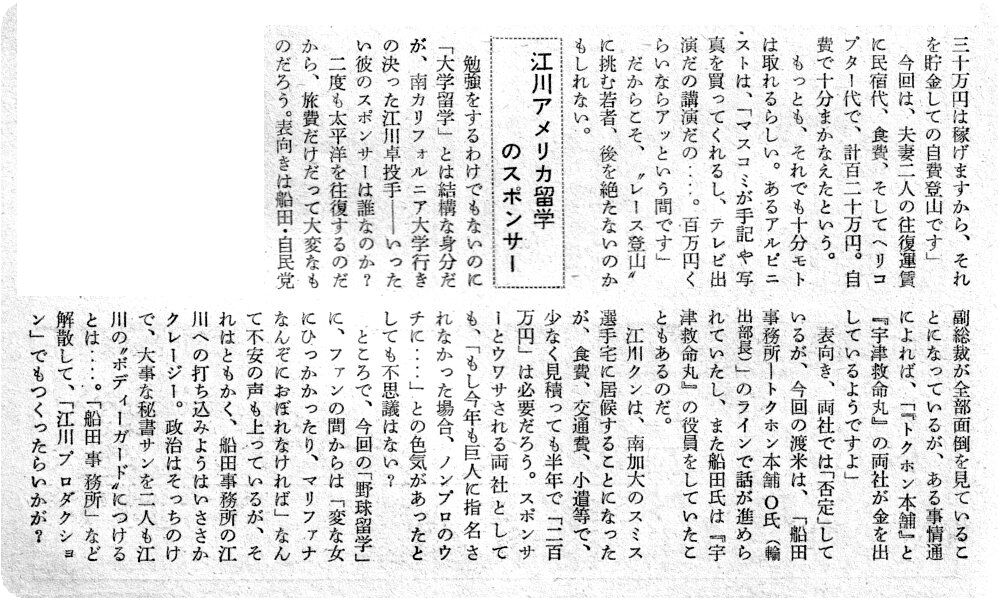 三十万円は稼げますから、それ
を貯金しての自費登山です」
　今回は、夫妻二人の往復運賃
に民宿代、食費、そしてヘリコ
プター代で、計百二十万円。自
費で十分まかなえたという。
　もっとも、それでも十分モト
は取れるらしい。あるアルピニ
ストは、「マスコミが手記や写
真を買ってくれるし、テレビ出
演だの講演だの‥‥。百万円く
らいならアッという間です」
　だからこそ、〝レース登山〟
に挑む若者、後を絶たないのか
もしれない。
江川アメリカ留学
のスポンサー
　勉強をするわけでもないのに
「大学留学」とは結構な身分だ
が、南カリフォルニア大学行き
の決った江川卓投手——いった
い彼のスポンサーは誰なのか？
　二度も太平洋を往復するのだ
から、旅費だけだって大変なも
のだろう。表向きは船田・自民党
副総裁が全部面倒を見ているこ
とになっているが、ある事情通
によれば、「『トクホン本舗』と
『宇津救命丸』の両社が金を出
しているようですよ」
　表向き、両社では「否定」して
いるが、今回の渡米は、「船田
事務所—トクホン本舗O氏（輸
出部長）」のラインで話が進めら
れていたし、また船田氏は『宇
津救命丸』の役員をしていたこ
ともあるのだ。
　江川クンは、南加大のスミス
選手宅に居候することになった
が、食費、交通費、小遣等で、
少なく見積っても半年で「二百
万円」は必要だろう。スポンサ
ーとウワサされる両社として
も、「もし今年も巨人に指名さ
れなかった場合、ノンプロのウ
チに‥‥」との色気があったと
しても不思議はない？
　ところで、今回の「野球留学」
に、ファンの間からは「変な女
にひっかかったり、マリファナ
なんぞにおぼれなければ」なん
て不安の声も上っているが、そ
れはともかく、船田事務所の江
川への打ち込みようはいささか
クレージー。政治はそっちのけ
で、大事な秘書サンを二人も江
川の〝ボディーガード〟につける
とは‥‥。「船田事務所」など
解散して、「江川プロダクショ
ン」でもつくったらいかが？